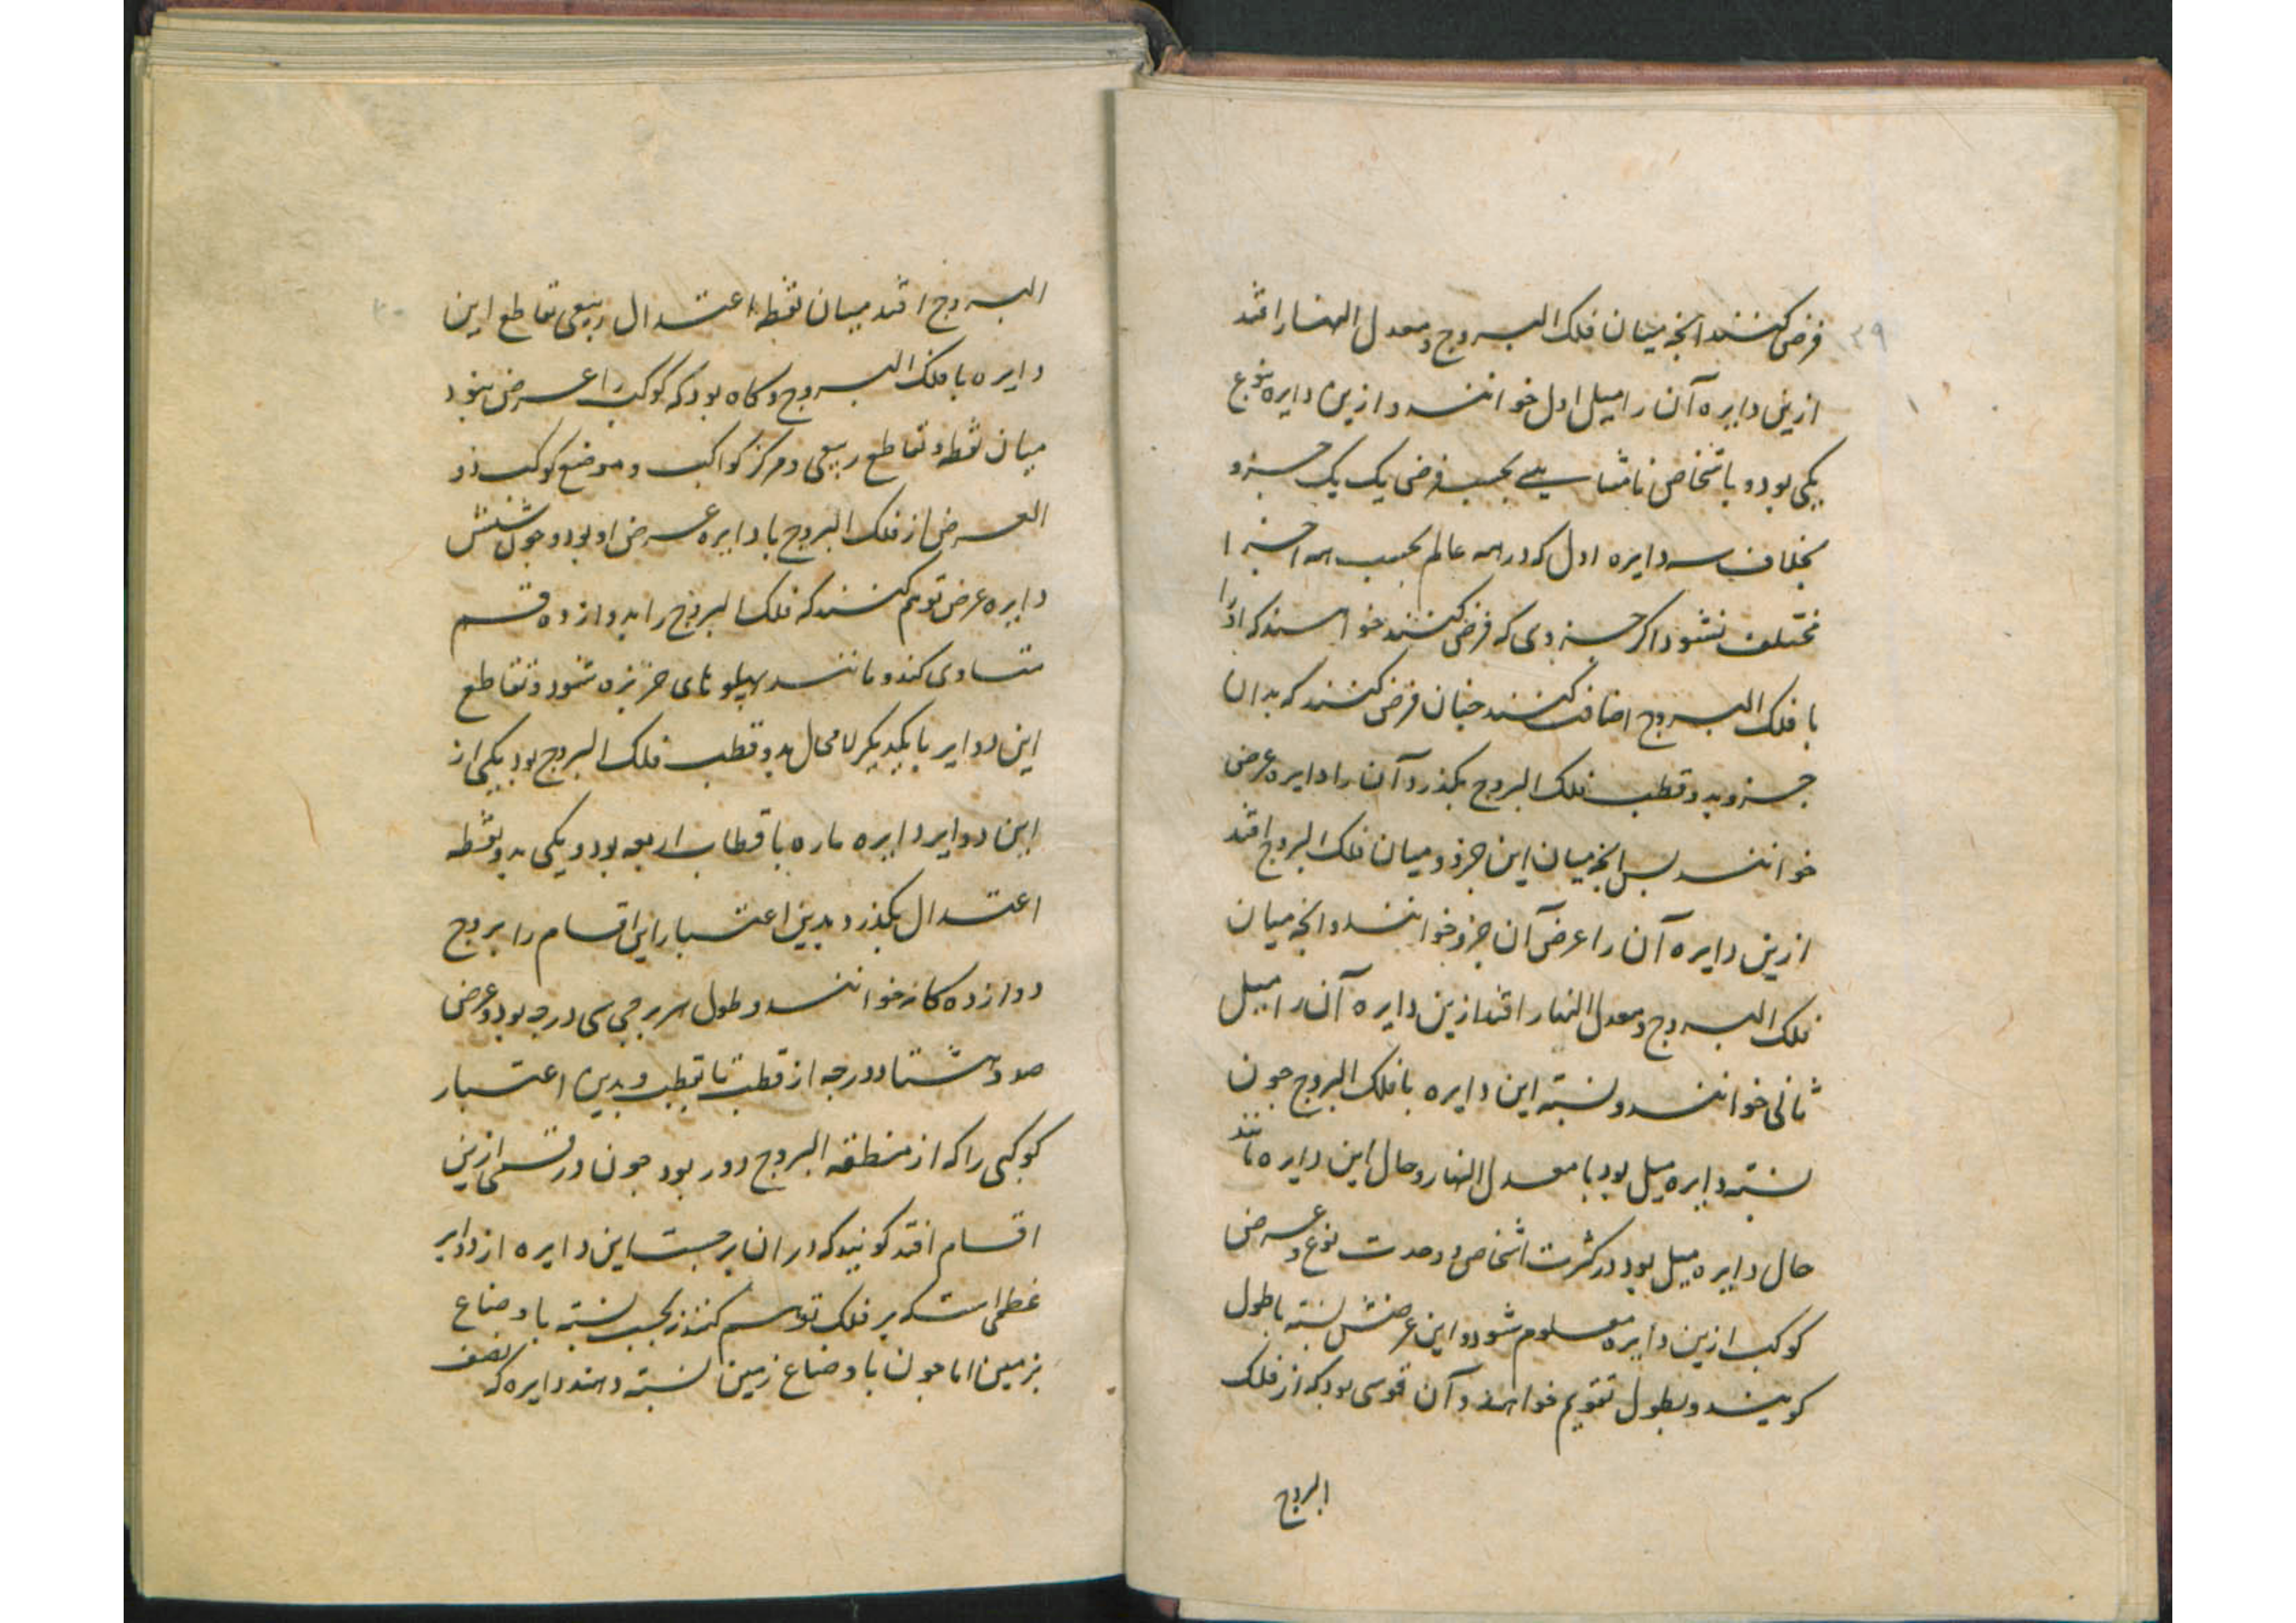 ۲۹
فرض کنند انچه میان فلک البروج و معدل النهار افتد
ازین دایره آن را میل اول خوانند و ازین دایره بنوع
یکی بود و باشخاص نامتناهی بحسب فرض یک یک جزو
بخلاف سه دایره اول که در همه عالم بحسب همه اجزا
مختلف نشود اکر جزوی که فرض کنند خواهند که او را
با فلک البروج اضافت کنند چنان فرض کنند که بدان
جزو بدو قطب فلک البروج بکذرد آن را دایره عرض
خوانند بس انچه میان این جزو و میان فلک البروج افتد
ازین دایره آن را عرض آن جزو خوانند و انچه میان
فلک البروج و معدل النهار افتد ازین دایره آن را میل
ثانی خوانند و نسبة این دایره با فلک البروج جون
نسبة دایره میل بود با معدل النهار و حال این دایره مانند
حال دایره میل بود در کثرت اشخاص و وحدت نوع و عرض
کوکب ازین دایره معلوم شود و این عرضش نسبة باطول
کویند و بطول تقویم خواهند و آن قوسی بود که از فلک
البروج
۳۰
البروج افتد میان نقطه اعتدال ربیعی تقاطع این
دایره با فلک البروج و کاه بود که کوکب را عرض نبود
میان نقطه تقاطع ربیعی و مرکز کواکب و موضع کوکب ذو
العرض از فلک البروج با دایره عرض او بود و جون شش
دایره عرض توهم کنند که فلک البروج را بدوازده قسم
متساوی کند و مانند پهلو های خربزه شود و تقاطع
این دوایر با یکدیکر لامحال بدو قطب فلک البروج بود یکی از
این دوایر دایره ماره باقطاب اربعه بود و یکی بدو نقطه
اعتدال بکذرد بدین اعتبار این اقسام را بروج
دوازده کانه خوانند و طول هر برجی سی درجه بود و عرض
صد و هشتاد درجه از قطب تا بقطب و بدین اعتبار
کوکبی را که از منطقه البروج دور بود جون در قسمی ازین
اقسام افتد کویند که در ان برجست این دایره از دوایر
عظمی است که بر فلک توهم کنند بحسب نسبة با اوضاع
بزمین اما جون با اوضاع زمین نسبة دهند دایره که نصف